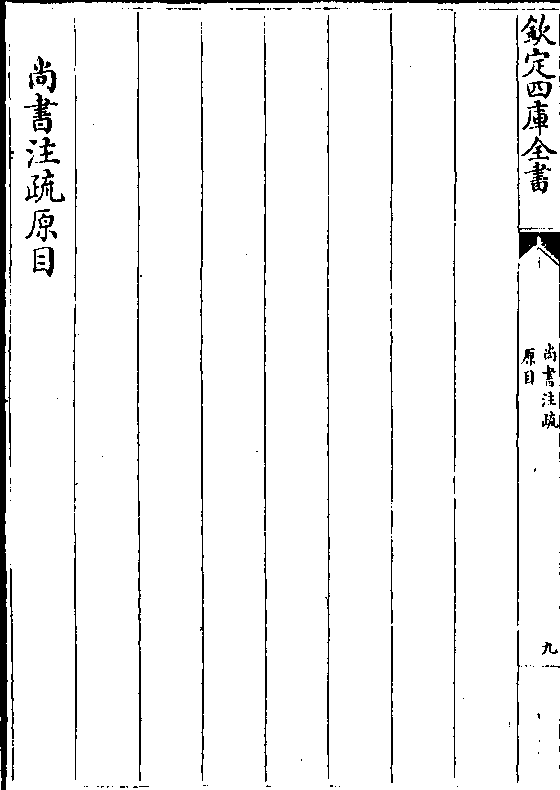 欽定四庫全書
尚書注疏
原目
九
尚書注疏原目